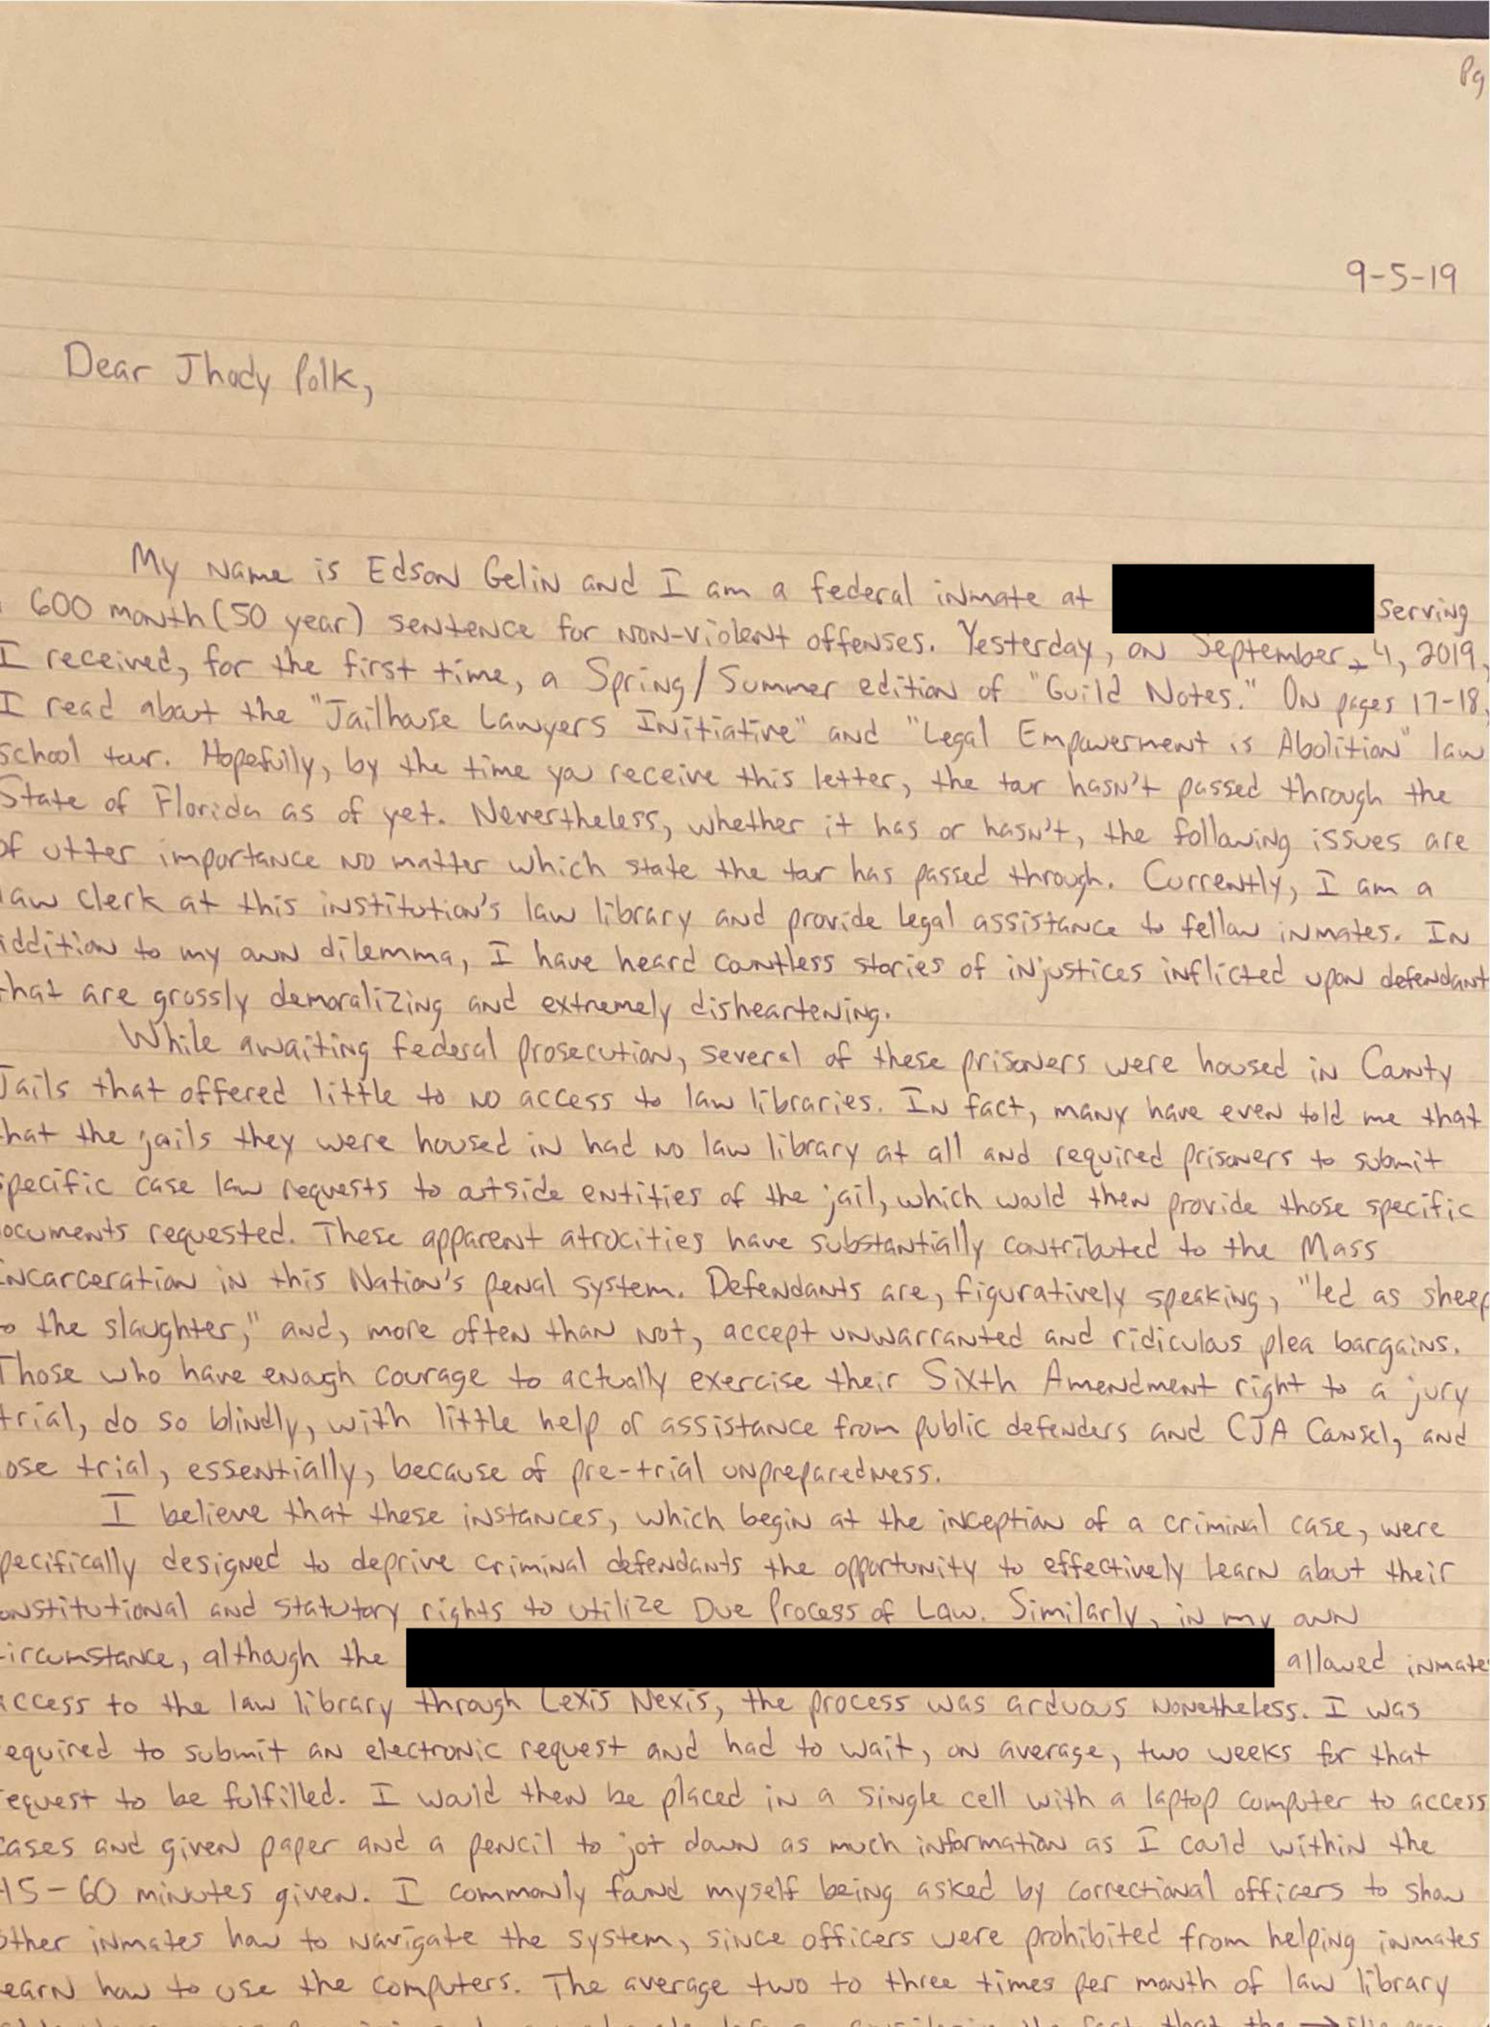 Pg
9-5-19
Dear Jhody Polk,
My name is Edson Gelin and I am a federal inmate at
600 month (50 year) sentence for non-violent offenses. Yesterday, on September 4, 2019,
serving
I received, for the first time, a Spring/Summer edition of "Guild Notes." On pages 17-18,
I read about the "Jailhouse Lawyers Initiative" and "Legal Empowerment is Abolition" law
school tour. Hopefully, by the time you receive this letter, the tour hasn't passed through the
State of Florida as of yet. Nevertheless, whether it has or hasn't, the following issues are
of utter importance no matter which state the tour has passed through. Currently, I am a
law clerk at this institution's law library and provide legal assistance to fellow inmates. In
addition to my own dilemma, I have heard countless stories of injustices inflicted upon defendant
that are grossly demoralizing and extremely disheartening.
While awaiting federal prosecution, several of these prisoners were housed in County
Jails that offered little to no access to law libraries. In fact, many have even told me that
hat the jails they were housed in had no law library at all and required prisoners to submit
pecific case law requests to outside entities of the jail, which would then provide those specific
ocuments requested. These apparent atrocities have substantially contributed to the Mass
Incarceration in this Nation's penal system. Defendants are, figuratively speaking, "led as sheep
o the slaughter," and, more often than not, accept unwarranted and ridiculous plea bargains.
Those who have enough courage to actually exercise their Sixth Amendment right to a jury
trial, do so blindly, with little help or assistance from public defenders and CJA Counsel, and
ose trial, essentially, because of pre-trial unpreparedness.
I believe that these instances, which begin at the inception of a criminal case, were
pecifically designed to deprive criminal defendants the opportunity to effectively learn about their
onstitutional and statutory rights to utilize Due Process of Law. Similarly, in my own
ircumstance, although the allowed inmate
access to the law library through Lexis Nexis, the process was arduous nonetheless. I was
equired to submit an electronic request and had to wait, on average, two weeks for that
equest to be fulfilled. I would then be placed in a single cell with a laptop computer to access
cases and given paper and a pencil to jot down as much information as I could within the
45-60 minutes given. I commonly found myself being asked by correctional officers to show
other inmates how to navigate the system, since officers were prohibited from helping inmates
earn how to use the computers. The average two to three times per month of law library